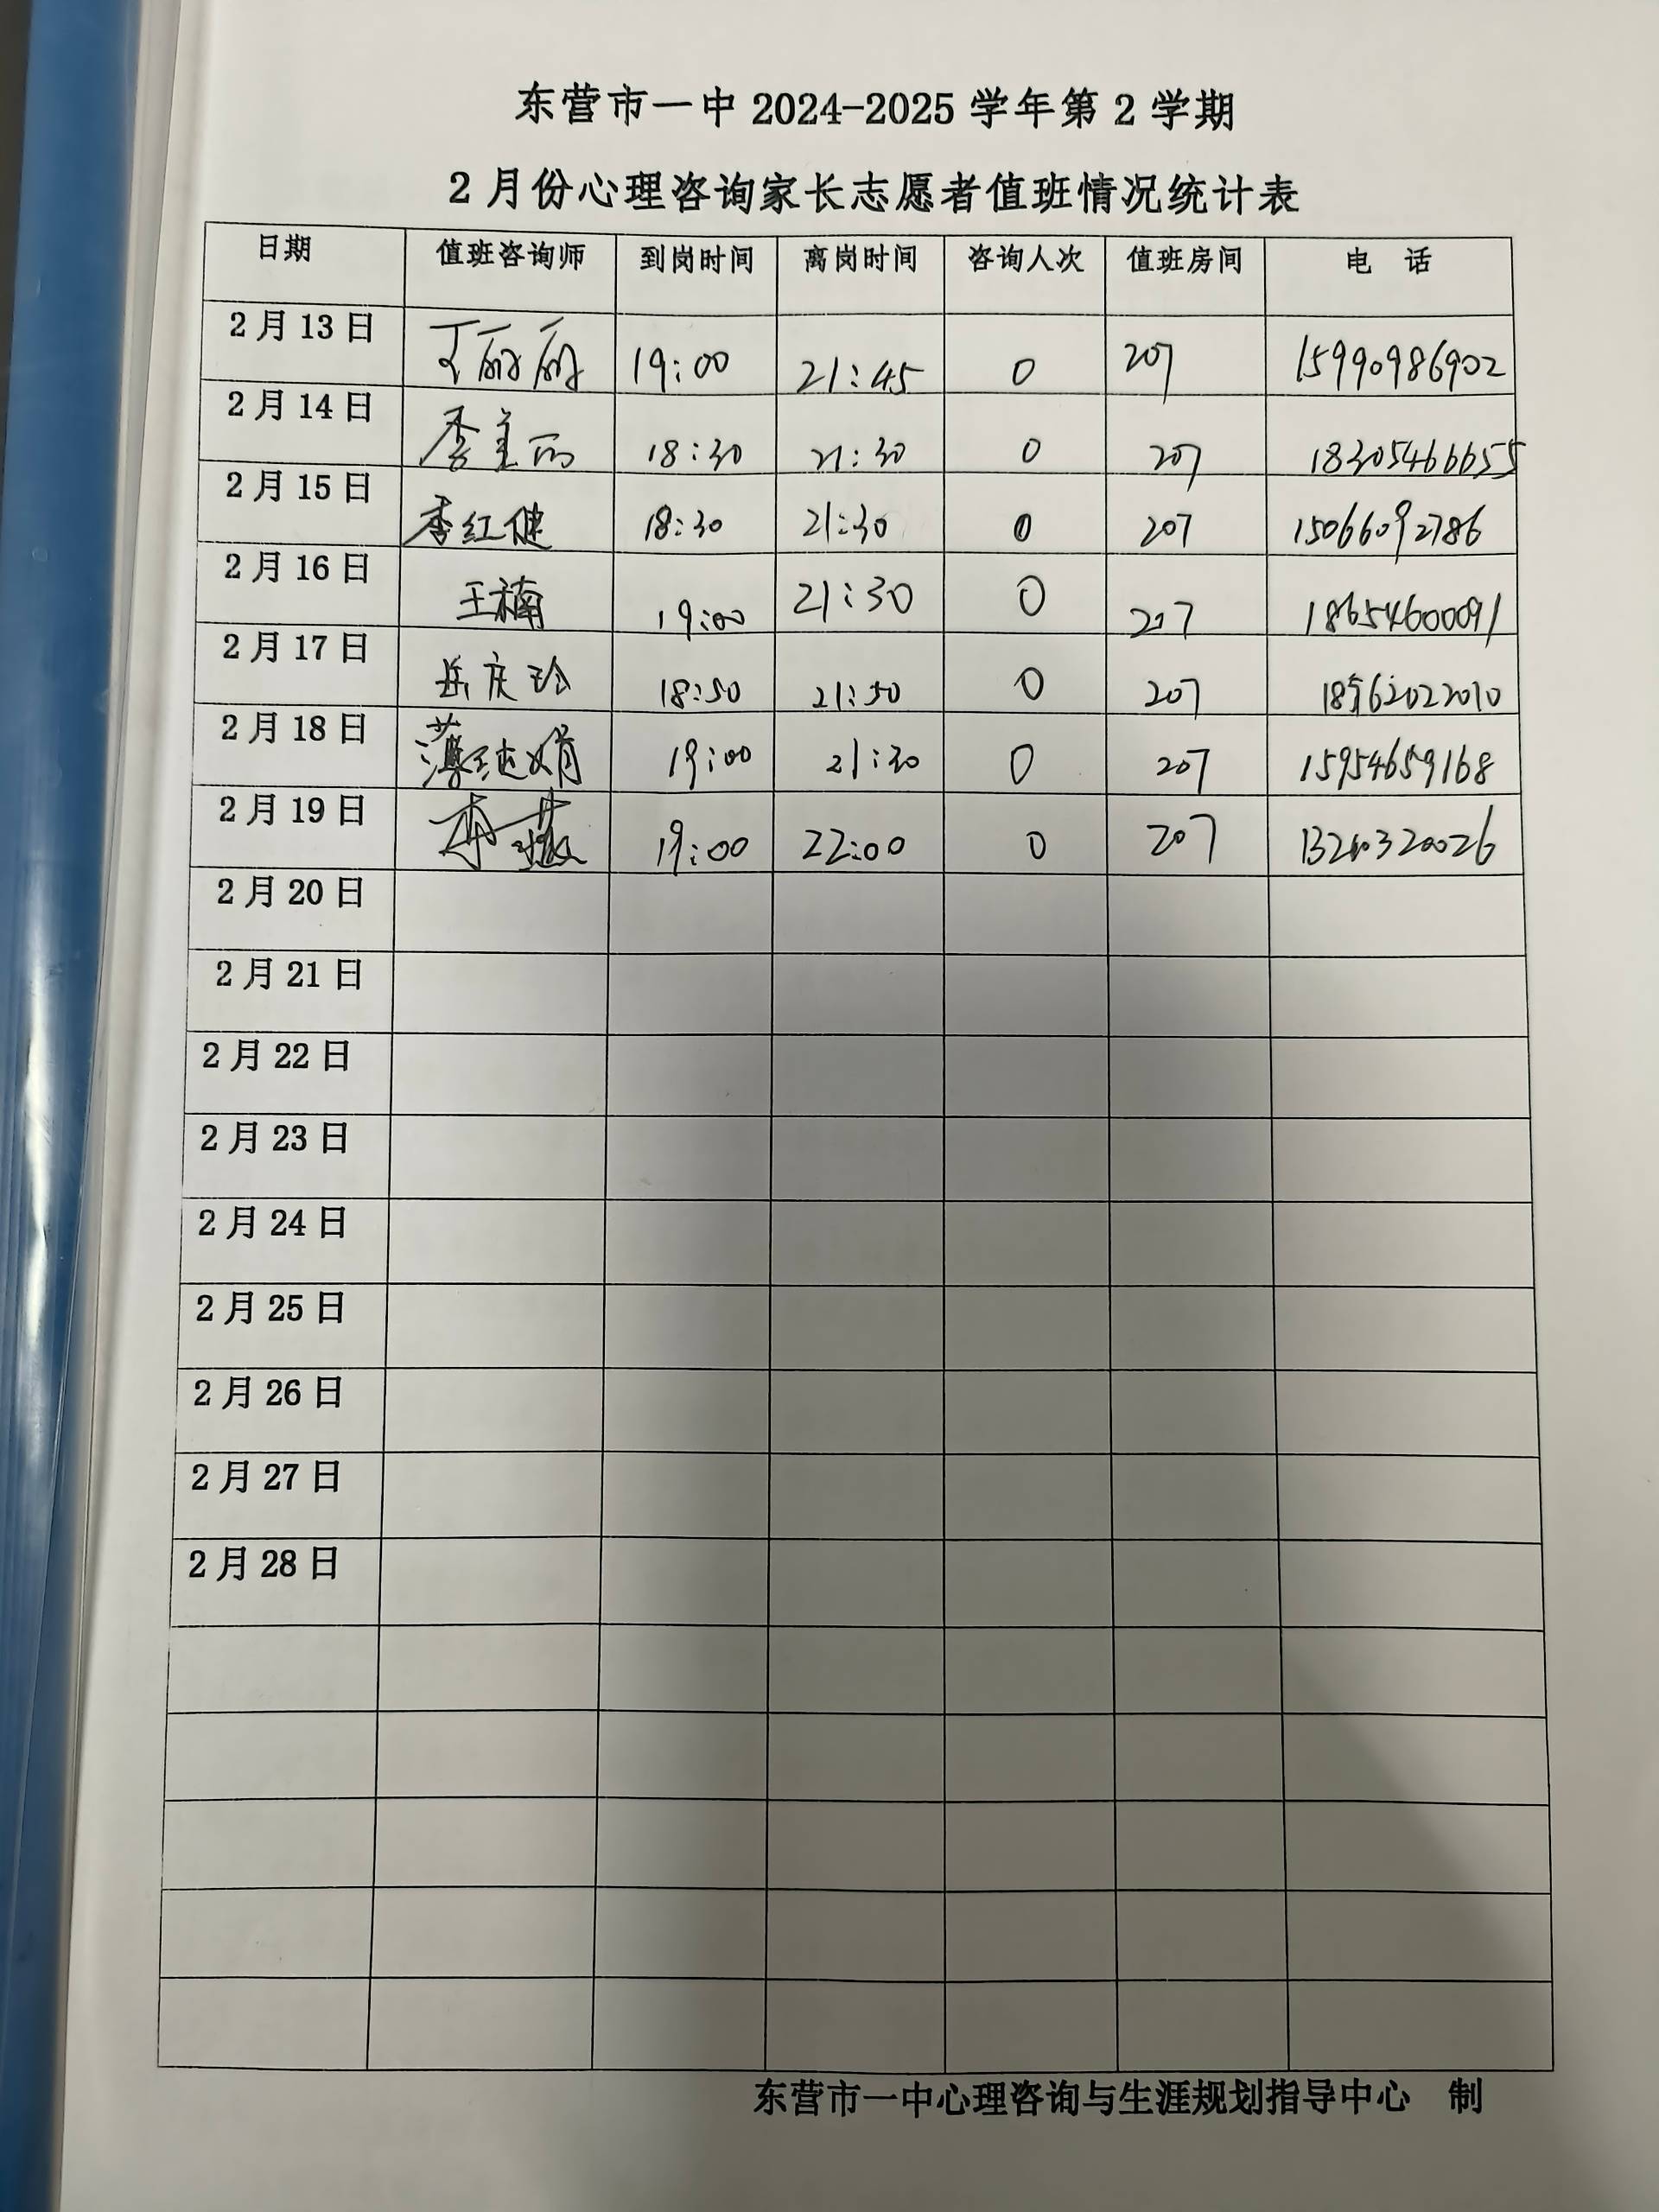 东营市一中 2024-2025 学年第 2 学期
2 月份心理咨询家长志愿者值班情况统计表
日期 值班咨询师 到岗时间 离岗时间 咨询人次 值班房间 电 话
2 月 13 日 王丽丽 19:00 21:45 0 207 15990986902
2 月 14 日 李美丽 18:30 21:30 0 207 18305466655
2 月 15 日 李红健 18:30 21:30 0 207 15066092786
2 月 16 日 王楠 19:00 21:30 0 207 18654600091
2 月 17 日 岳庆玲 18:50 21:50 0 207 18562022010
2 月 18 日 19:00 21:30 0 207 15954659168
2 月 19 日 19:00 22:00 0 207
2 月 20 日
2 月 21 日
2 月 22 日
2 月 23 日
2 月 24 日
2 月 25 日
2 月 26 日
2 月 27 日
2 月 28 日
东营市一中心理咨询与生涯规划指导中心 制